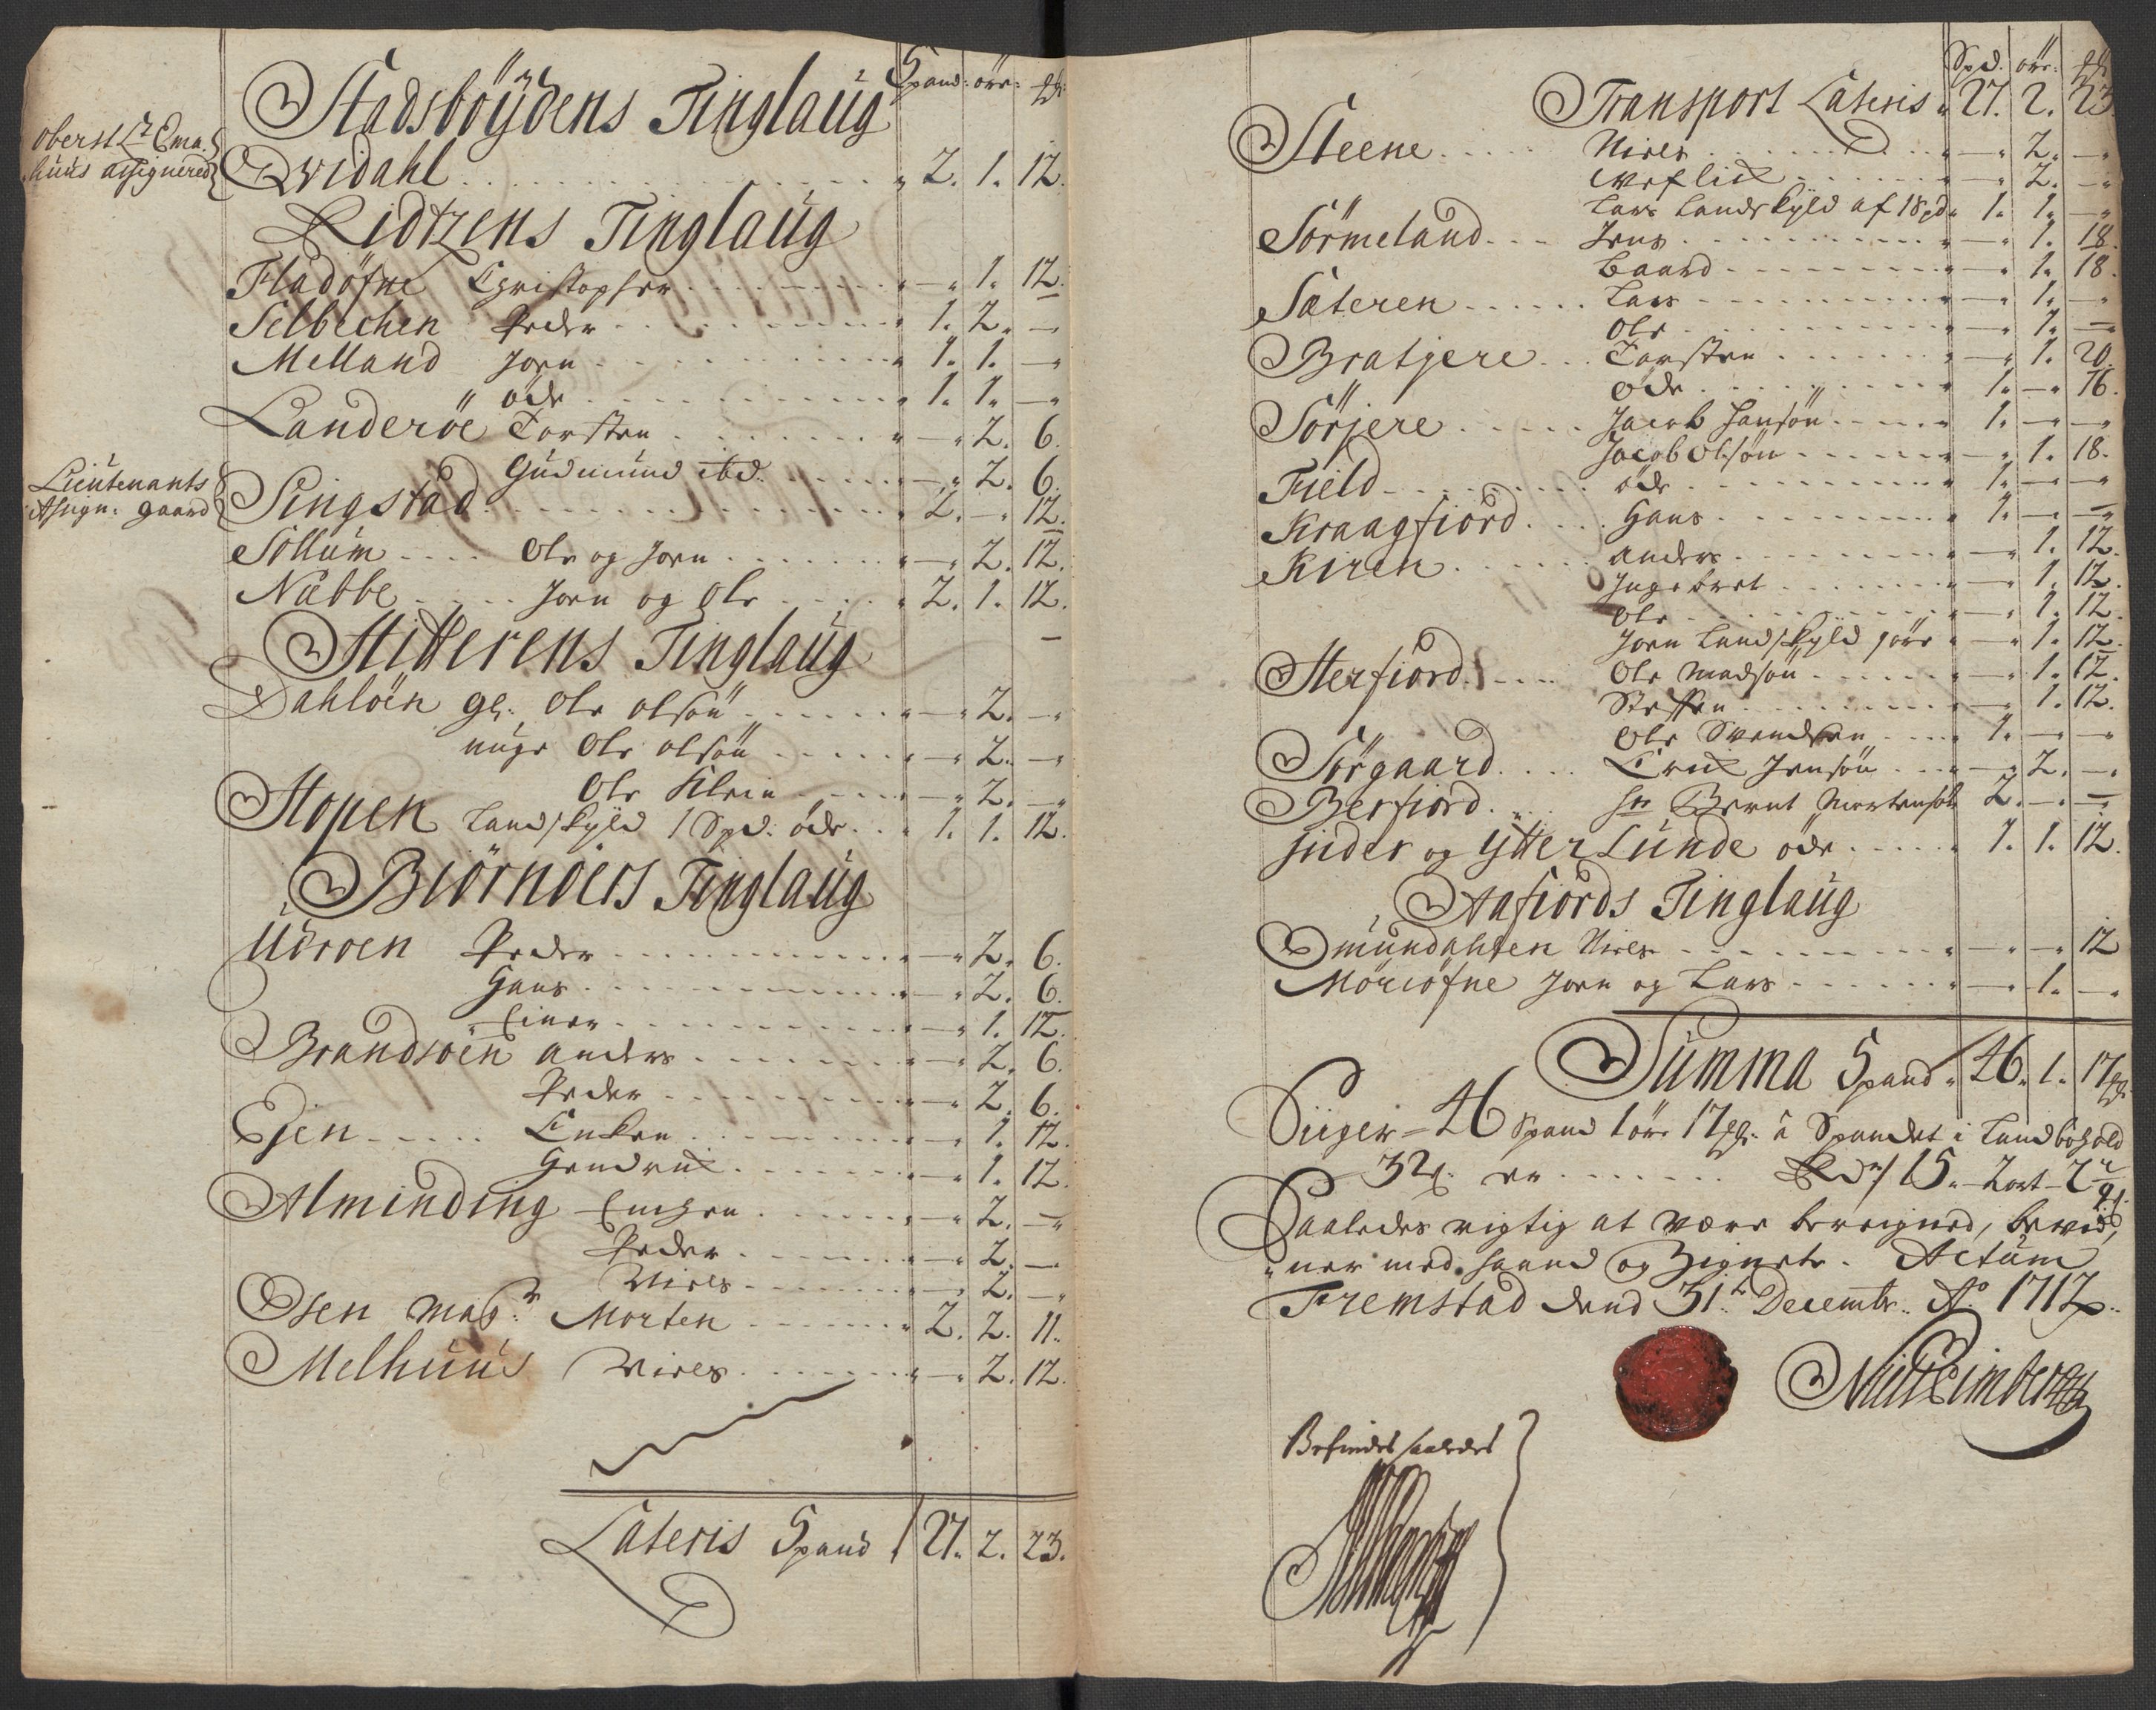 Spand: öre:
Stadsböÿdens Tinglaug
Oberst Lt Ema.
huus assignered
Qvidahl . . . 2. 1. 12.
Ridtzens Tinglaug
Fladöfne Christopher . . . — 1. 12.
Selbechen Peder . . . 1. 2. —
Melland Joen . . . 1. 1. —
öde . . . 1. 1. —
Landeröe Torsten . . . — 2. 6.
Gudmund ibd. . . . — 2. 6.
Lieutenants
Assign: gaard
Singstad . . . 2. — 12.
Sollum . . . Ole og Joen . . . — 2. 12.
Nabbe . . . Joen og Ole . . . 2. 1. 12.
Hitterens Tinglaug
Dahlöen gl. Ole olsön . . . — 2. —
unge Ole olsön . . . — 2. —
Ole Klein . . . — 2. —
Hopen Landskyld 1 Spd: öde . . . 1. 1. 12.
Biörnöers Tinglaug
Udroen Peder . . . — 2. 6.
Hans . . . — 2. 6.
Einer . . . — 1. 12.
Brandsöen anders . . . — 2. 6.
Peder . . . — 2. 6.
Ejen . . . Enken . . . — 1. 12.
Hendrik . . . — 1. 12.
Alminding Enchen . . . — 2. —
Peder . . . — 2. —
Niels . . . — 2. —
Osen Mag:r Morten . . . 2. 2. 11.
Melhuus Niels . . . — 2. 12.
Lateris Spand 27. 2. 23.
Spd. öre.
Transport Lateris 27. 2. 23
Steene . . . Niels . . . — 2. —
. . . — 2. —
Lars Landskyld af 1 Spd 1. 1. —
Sörmeland . . . Jens . . . — 1. 18.
Baard . . . — 1. 18.
Sæteren . . . Lars . . . — 1. —
Ole . . . — 1. —
Bratjere . . . Torsten . . . — 1. 20.
öde . . . 1. — 16.
Sörjere . . . Jacob Hansön . . . 1. — —
Jacob Olsön . . . — 1. 18.
Field . . . öde . . . 1. — —
Kraagfiord . . . Hans . . . 1. — —
Kiren . . . anders . . . — 1. 12.
Ingebret . . . — 1. 12.
Ole . . . — 1. 12.
Joen Landskyld 1 öre — 1. 12.
Sterfiord . . . Ole Madsön . . . — 1. 12.
Steffen . . . — 1. 12.
Ole Svendsen . . . 1. — —
Sörgaard . . . Erik Jensön . . . — 2. —
Berfiord . . . Hr Bernt Mortensön 2. — —
inder og ÿtter Lunde öde . . . 1. 1. 12.
Aafiords Tinglaug
Omundahlen Niels . . . — — 12
Möriöfne Joen og Lars . . . — 1. —
Summa Spand 46. 1. 17
Siiger = 46 Spand 1 öre 17 à Spandet i Landbohold
er . . . 15 - 2 ort -
Saaledes rigtig at være beregned, bevid,
ner med haand og Zignete. Actum
Fremstad dend 31. Decembr. Ao 1712.
Befindes saaledes